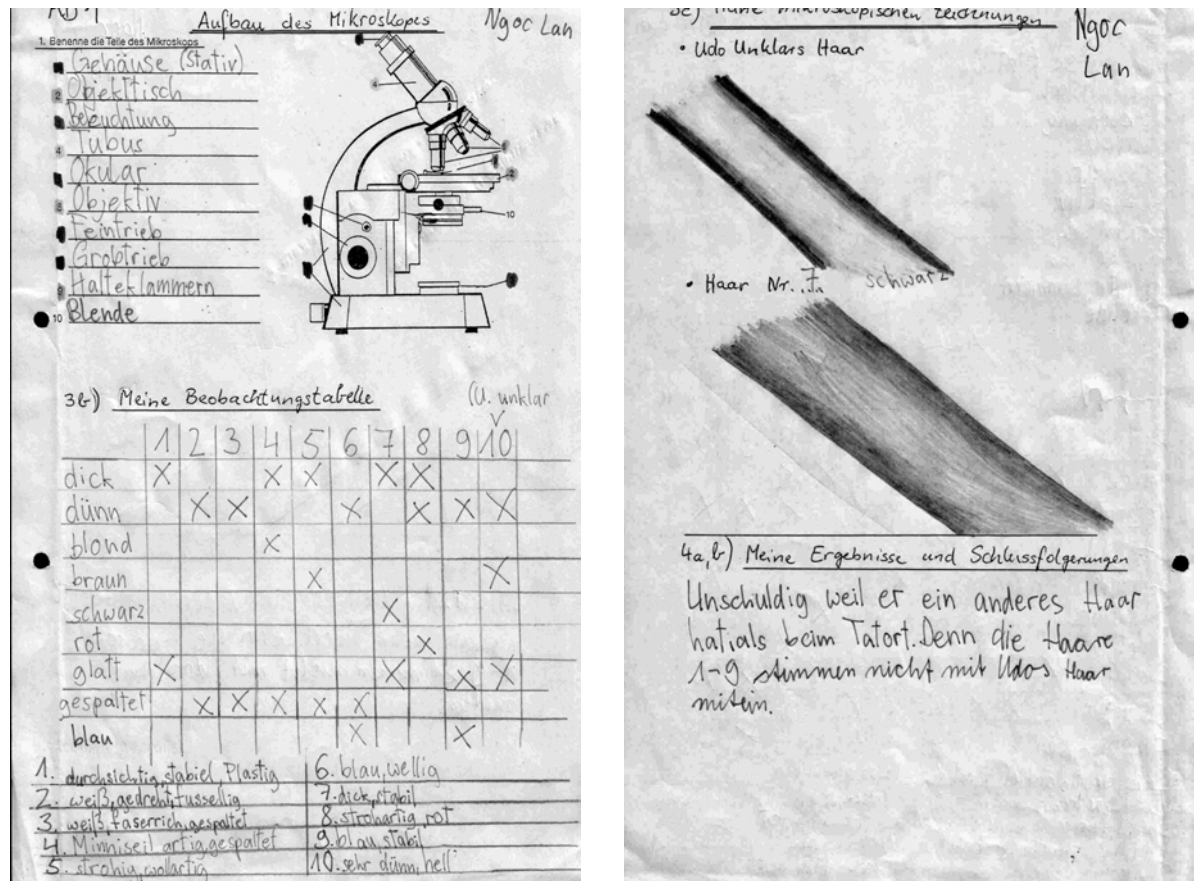 Aufbau des Mikroskopes
Ngoc Lan
1. Benenne die Teile des Mikroskops
Gehäuse (Stativ)
2 Objekttisch
Beleuchtung
4 Tubus
Okular
Objektiv
Feintrieb
Grobtrieb
9 Halteklammern
10 Blende
4
2
10
3b) Meine Beobachtungstabelle
(U. unklar
1 2 3 4 5 6 7 8 9 10
dick X X X X X
dünn X X X X X X
blond X
braun X X
schwarz X
rot X
glatt X X X X
gespaltet X X X X X
blau X X
1. durchsichtig, stabiel, Plastig
2. weiß, gedreht, fussellig
3. weiß, faserrich, gespaltet
4. Minniseil artig, gespaltet
5. strohig, wollartig
6. blau, wellig
7. dick, stabil
8. strohartig, rot
9. blau, stabil
10. sehr dünn, hell
3c) Meine mikroskopischen Zeichnungen
Ngoc
Lan
• Udo Unklars Haar
• Haar Nr. 7
schwarz
4a,b) Meine Ergebnisse und Schlussfolgerungen
Unschuldig weil er ein anderes Haar
hat als beim Tatort. Denn die Haare
1-9 stimmen nicht mit Udos Haar
mitein.